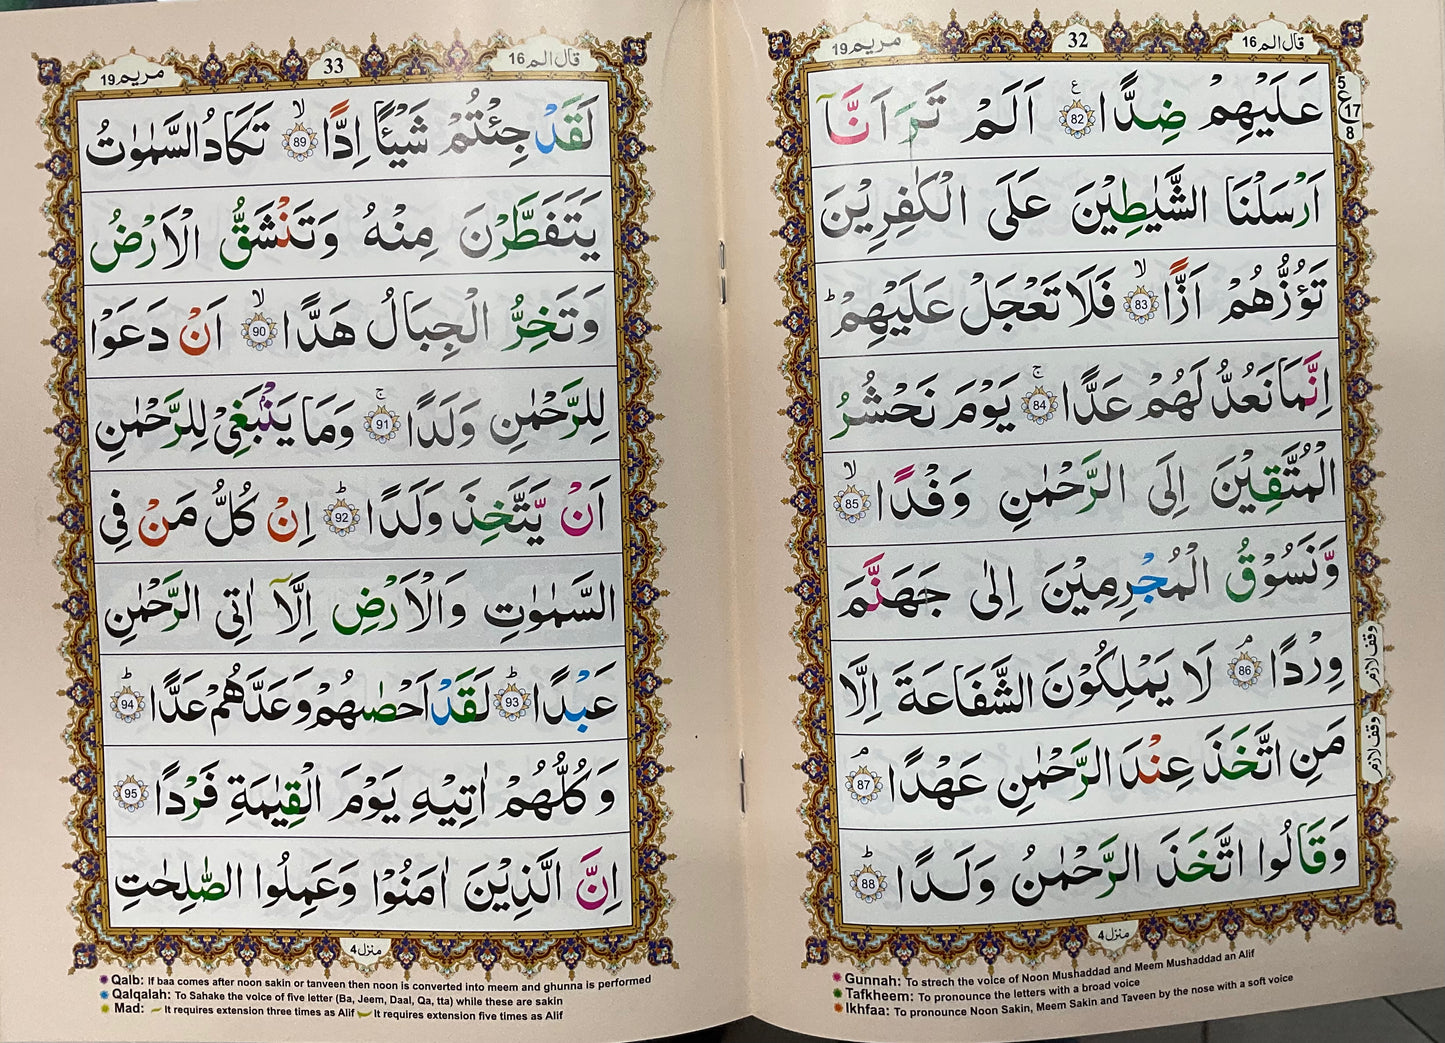 مريم 19
32
قال الم 16
عَلَيْهِمْ ضِدًّا ۙ ع 82 اَلَمْ تَرَ اَنَّاۤ
5
ع
17
8
اَرْسَلْنَا الشَّيٰطِيْنَ عَلَى الْكٰفِرِيْنَ
تَؤُزُّهُمْ اَزًّا ۙ 83 فَلَا تَعْجَلْ عَلَيْهِمْ ؕ
اِنَّمَا نَعُدُّ لَهُمْ عَدًّا ۚ 84 يَوْمَ نَحْشُرُ
الْمُتَّقِيْنَ اِلَى الرَّحْمٰنِ وَفْدًا ۙ 85
وَّنَسُوْقُ الْمُجْرِمِيْنَ اِلٰى جَهَنَّمَ
وِرْدًا ۘ 86 لَا يَمْلِكُوْنَ الشَّفَاعَةَ اِلَّا
وقف لازم
مَنِ اتَّخَذَ عِنْدَ الرَّحْمٰنِ عَهْدًا ۘ 87
وقف لازم
وَقَالُوا اتَّخَذَ الرَّحْمٰنُ وَلَدًا ؕ 88
منزل 4
Gunnah: To strech the voice of Noon Mushaddad and Meem Mushaddad an Alif
Tafkheem: To pronounce the letters with a broad voice
Ikhfaa: To pronounce Noon Sakin, Meem Sakin and Taveen by the nose with a soft voice
مريم 19
33
قال الم 16
لَقَدْ جِئْتُمْ شَيْـًٔا اِدًّا ۙ 89 تَكَادُ السَّمٰوٰتُ
يَتَفَطَّرْنَ مِنْهُ وَتَنْشَقُّ الْاَرْضُ
وَتَخِرُّ الْجِبَالُ هَدًّا ۙ 90 اَنْ دَعَوْا
لِلرَّحْمٰنِ وَلَدًا ۚ 91 وَمَا يَنْۢبَغِيْ لِلرَّحْمٰنِ
اَنْ يَّتَّخِذَ وَلَدًا ؕ 92 اِنْ كُلُّ مَنْ فِي
السَّمٰوٰتِ وَالْاَرْضِ اِلَّاۤ اٰتِي الرَّحْمٰنِ
عَبْدًا ؕ 93 لَقَدْ اَحْصٰىهُمْ وَعَدَّهُمْ عَدًّا ؕ 94
وَكُلُّهُمْ اٰتِيْهِ يَوْمَ الْقِيٰمَةِ فَرْدًا 95
اِنَّ الَّذِيْنَ اٰمَنُوْا وَعَمِلُوا الصّٰلِحٰتِ
منزل 4
Qalb: If baa comes after noon sakin or tanveen then noon is converted into meem and ghunna is performed
Qalqalah: To Sahake the voice of five letter (Ba, Jeem, Daal, Qa, tta) while these are sakin
Mad: It requires extension three times as Alif It requires extension five times as Alif